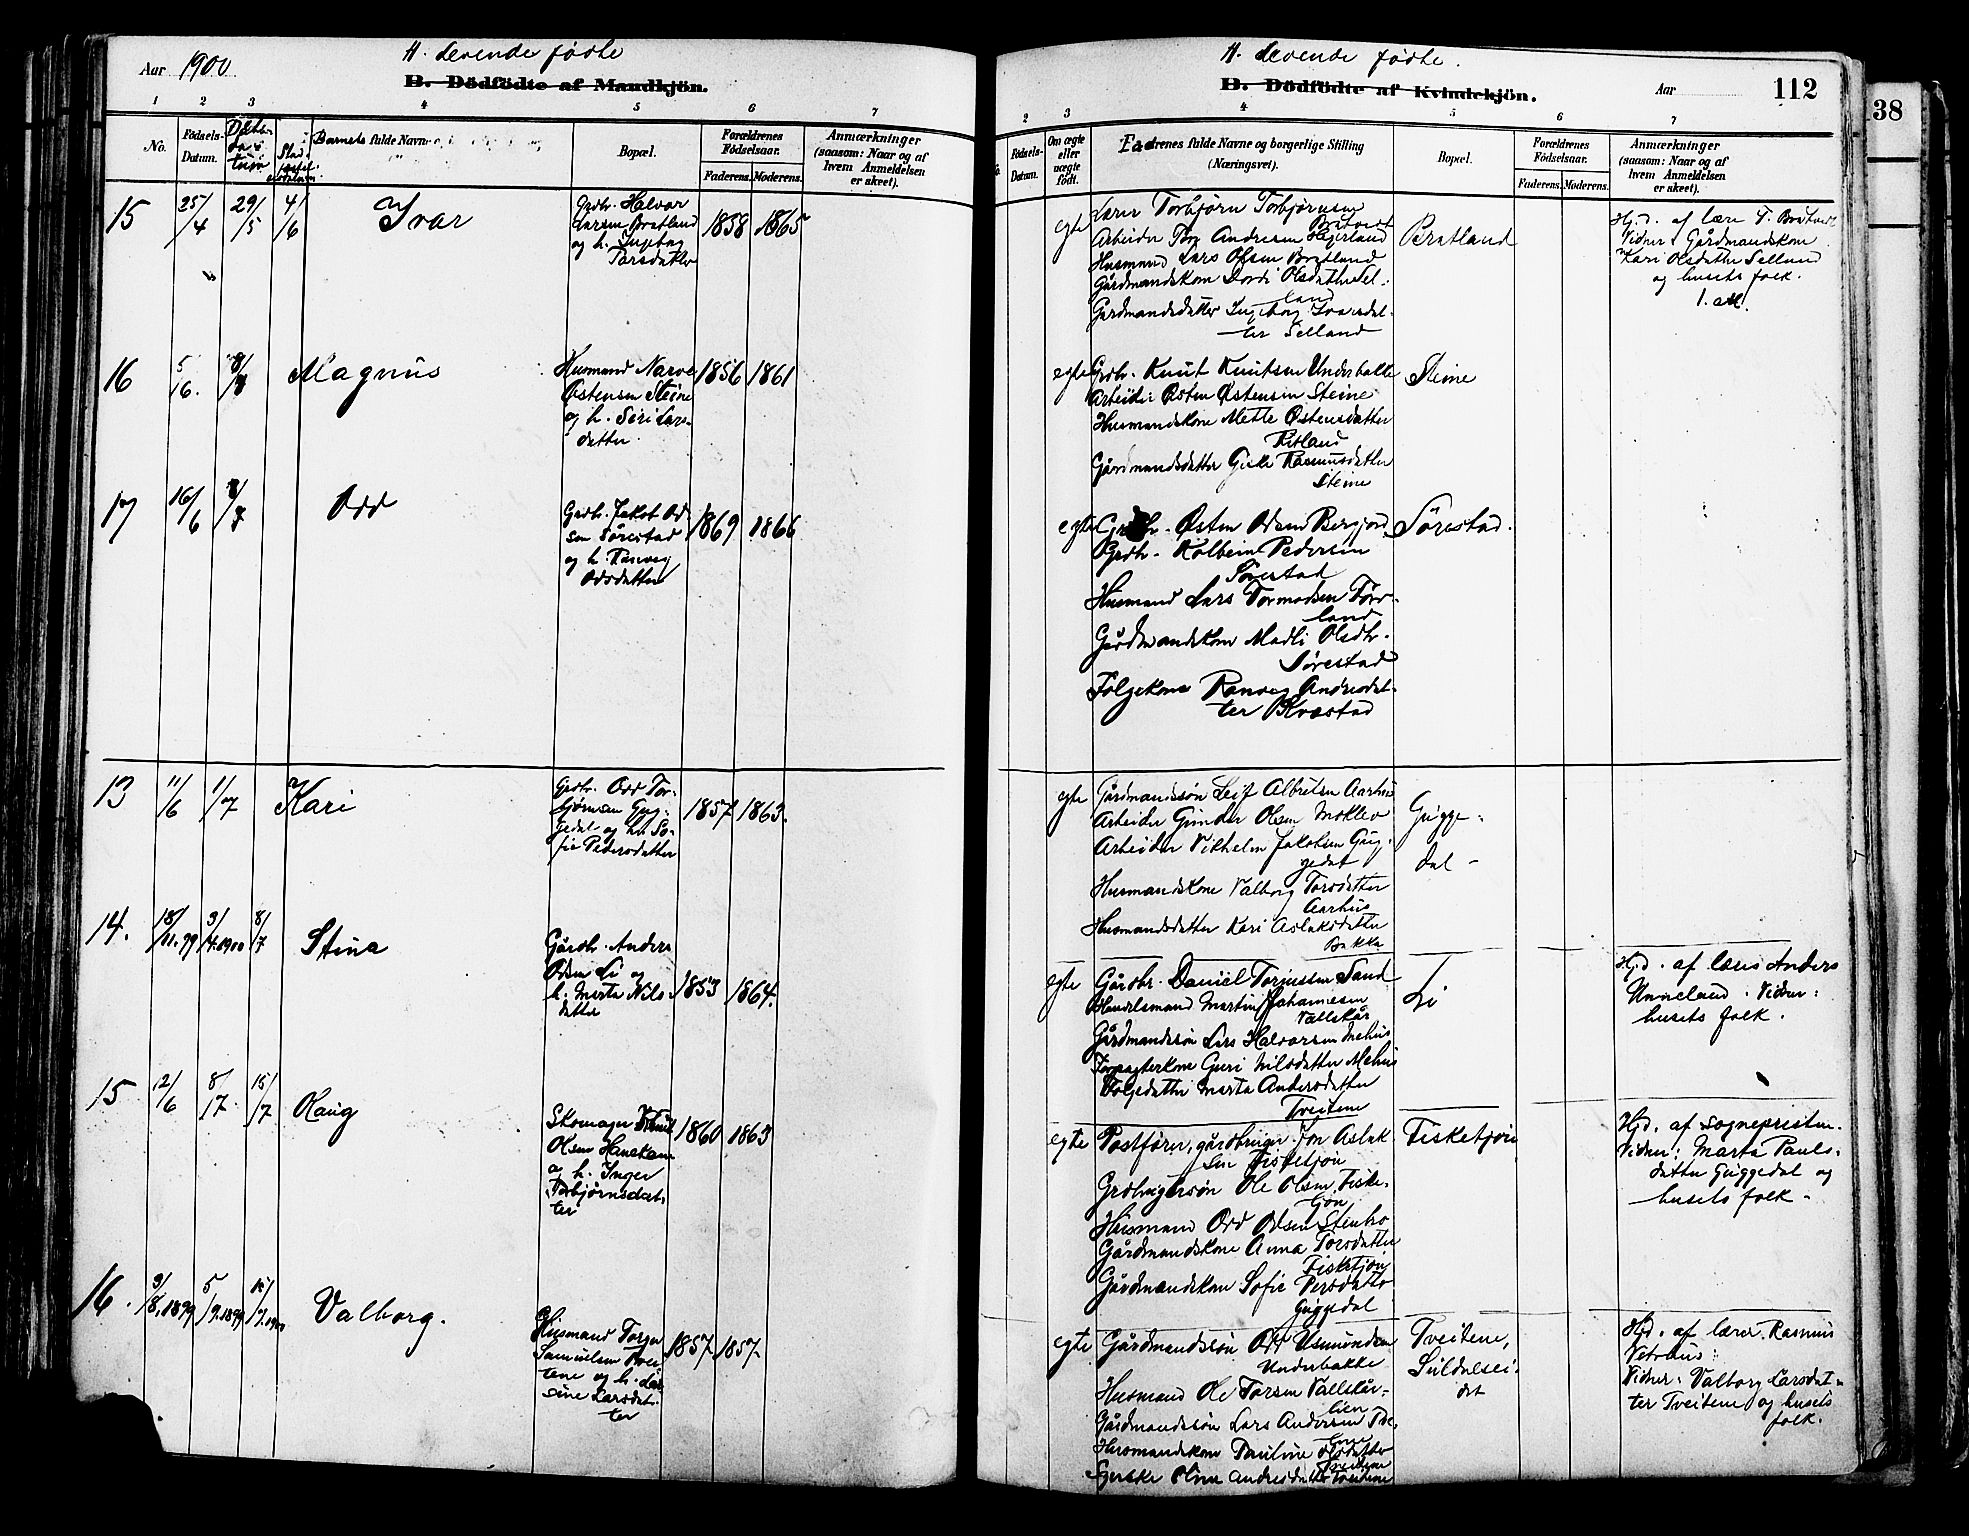 Aar 1900
A. Levende födte
B. Dödfödte af Mandkjön.
1 2 3 4 5 6 7
No.
Födsels-
Datum.
Barnets fulde Navn
Bopæl.
Forældrenes
Födselsaar.
Faderens. Moderens.
Anmærkninger
(saasom: Naar og af
hvem Anmeldelsen
er skeet).
15 25/4 29/5 4/6 Ivar
Grdbr. Halvor
Larsen Bratland
og h. Ingebog
Larsdatter
1858 1865
16 5/16. Magnus
Husmand Narve
Østensen Steine
og h. Siri Lars-
datter.
1856 1861
17 16/6 Odd
Grdbr. Jakob Od
sen Sørestad
og h. Ranveg
Odsdatter
1869 1866
13 11/6 1/7 Kari
Grdbr. Odd Tor-
bjørnsen Gug-
gedal og h. So-
fie Pedersdatter
1857 1863.
14. 18/11.99 3/4.1900 8/7 Stina
Gårdbr. Anders
Odsen Li og
h. Marta Nils-
datter
1853 1864.
15 12/6 8/17. 15/7 Raug
Skomager Knut
Olsen
og h. Inger
Torbjørnsdat-
ter
1860 1863
16. 9/8.1899 5/9.1899 15/7.1900 Valborg.
Husmand Torger
Samuelsen Tvei-
tene og h. La-
sine Larsdat-
ter
1857 1857
A. Levende fødte.
B. Dödfödte af Kvindekjön.
Aar
112
38
2 3 4 5 6 7
Födsels-
Datum.
Om ægte
eller
uægte
födt.
Fadrenes fulde Navne og borgerlige Stilling
(Næringsvei).
Bopæl.
Forældrenes
Födselsaar.
Faderens. Moderens.
Anmærkninger
(saasom: Naar og af
hvem Anmeldelsen
er skeet).
egte Lærer Torbjørn Torbjørnsen
Bratland
Arbeider Tore Andresen Hegerland
Husmand Lars Olsen Bratland
Gårdmandskone Dordi Olsdatter Sel-
land
Gardmandsdatter Ingeborg Ivarsdat-
ter Selland
Bratland
Hjd. af lærer T. Bratland
Vidner: Gårdmandskone
Kari Olsdatter Selland
og husets folk.
egte Grdbr. Knut Knutsen Underbakke
Arbeider Østen Østensen Steine
Husmandskone Mette Østensdatter
Ritland
Gårdmandsdatter Rasmusdatter
Steine
Steine
egte Grdbr. Østen Odsen Bergjord
Grdbr. Kolbein Pedersen
Sørestad
Husmand Lars Tormodsen Førr-
land
Gårdmandskone Madli Olsdtr.
Sørestad
Følgekone Ranveg Andersdat-
ter Kvæstad
Sørestad.
egte Gårdmandssøn Leif Albretsen Aarhus
Arbeider Gunder Olsen Moklev
Arbeider Vilhelm Jakobsen Gug-
gedal
Husmandskone Valborg Torsdatter
Aarhus
Husmandsdatter Kari Aslaksdatter
Bakka
Gugge-
dal-
egte Gårdbr. Daniel Torjussen Sand
Handelsmand Martin Johannesen
Vallskår
Gårdmandssøn Lars Halvorsen Mehus
Forpagterkone Guri Nilsdatter Mehus
Følgedatter Marta Andersdatter
Tveitene
Li
Hjd. af lærer Anders
Vidner:
husets folk.
egte Postfører, gårdbruger Jon Aslak-
sen Fisketjøn
Grdbrugersøn Ole Olsen Fiske-
tjøn
Husmand Odd Odsen Stenbro
Gårdmandskone Anna Torsdatter
Fisketjøn
Gårdmandskone Sofie Persdatter
Guggedal
Fisketjøn
Hjd. af sognepresten.
Vidner: Marta Pauls-
datter Guggedal og
husets folk-
egte Gårdmandssøn Odd Asmundsen
Underbakke
Husmand Ole Torsen Vallskår-
lien
Gårdmandssøn Lars Andersen Tvei-
tene
Husmandskone Pauline Olsdatter
Tveitene
Gerske Oline Andersdatter Tveitene
Tveitene,
Suldalsei-
det
Hjd. af lærer Rasmus
Vetrhus:
Vidner: Valborg Larsdat-
ter Tveitene og husets
folk.